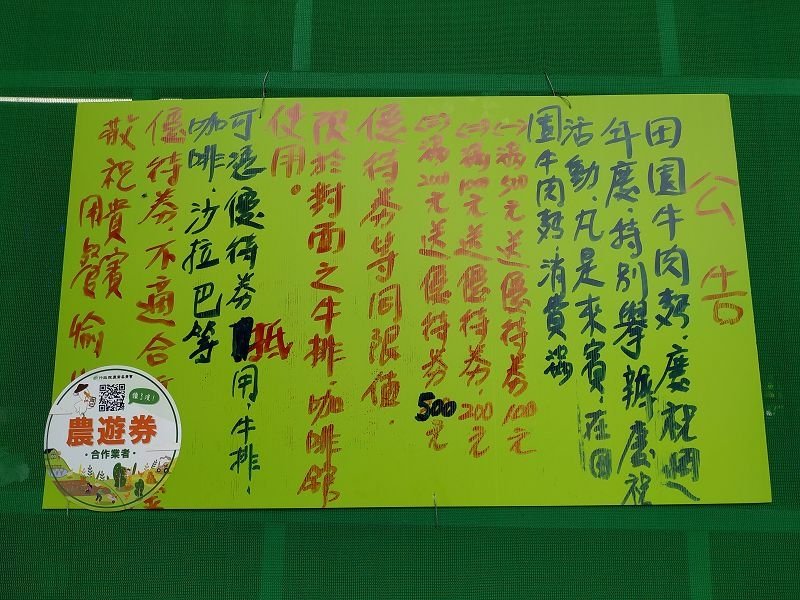 公告
田園牛肉麵.慶祝週
年慶.特別舉辦慶祝
活動.凡是來賓.在田
園牛肉麵.消費滿
㈠滿500元送優待券100元
㈡滿1000元送優待券.200元
㈢滿2000元送優待券500元
優待券等同限值.
限於對面之牛排.咖啡館
使用。
可憑優待券抵用.牛排.
咖啡.沙拉巴等
優待券.不適合
敬祝貴賓
用餐愉
農遊券
合作業者